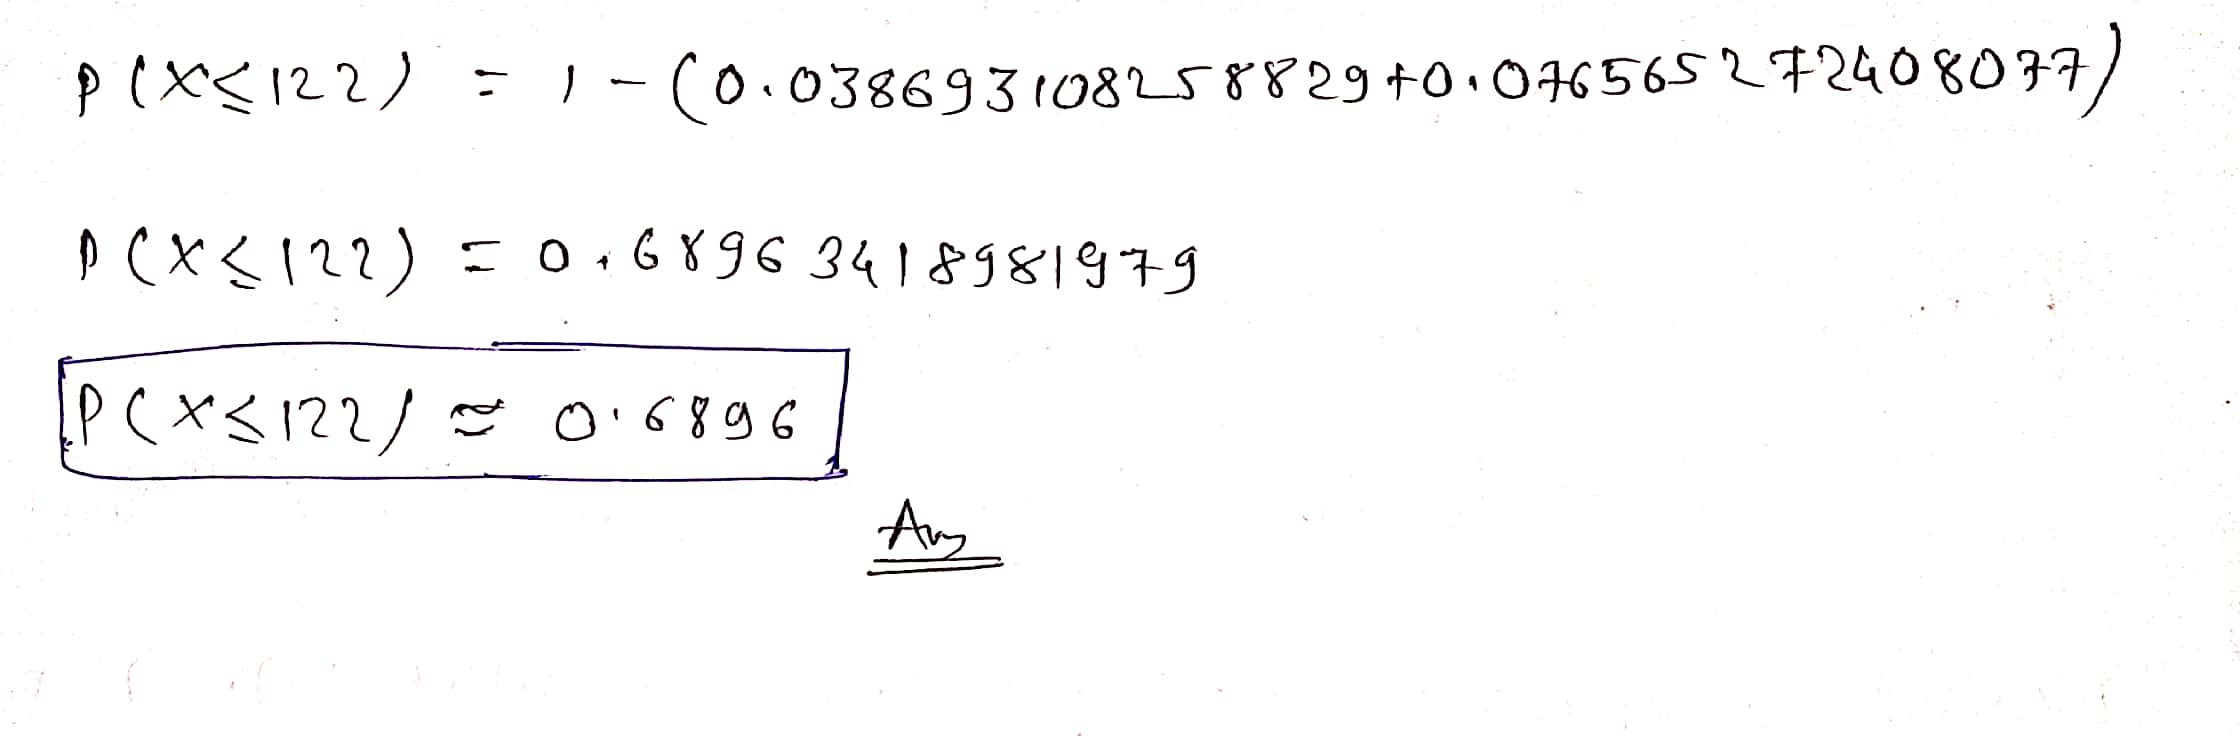 P(X≤122) = 1-(0.038693108258829+0.076565272408077)
P(X≤122) = 0.68963418981979
P(X≤122) ≈ 0.6896
Ans